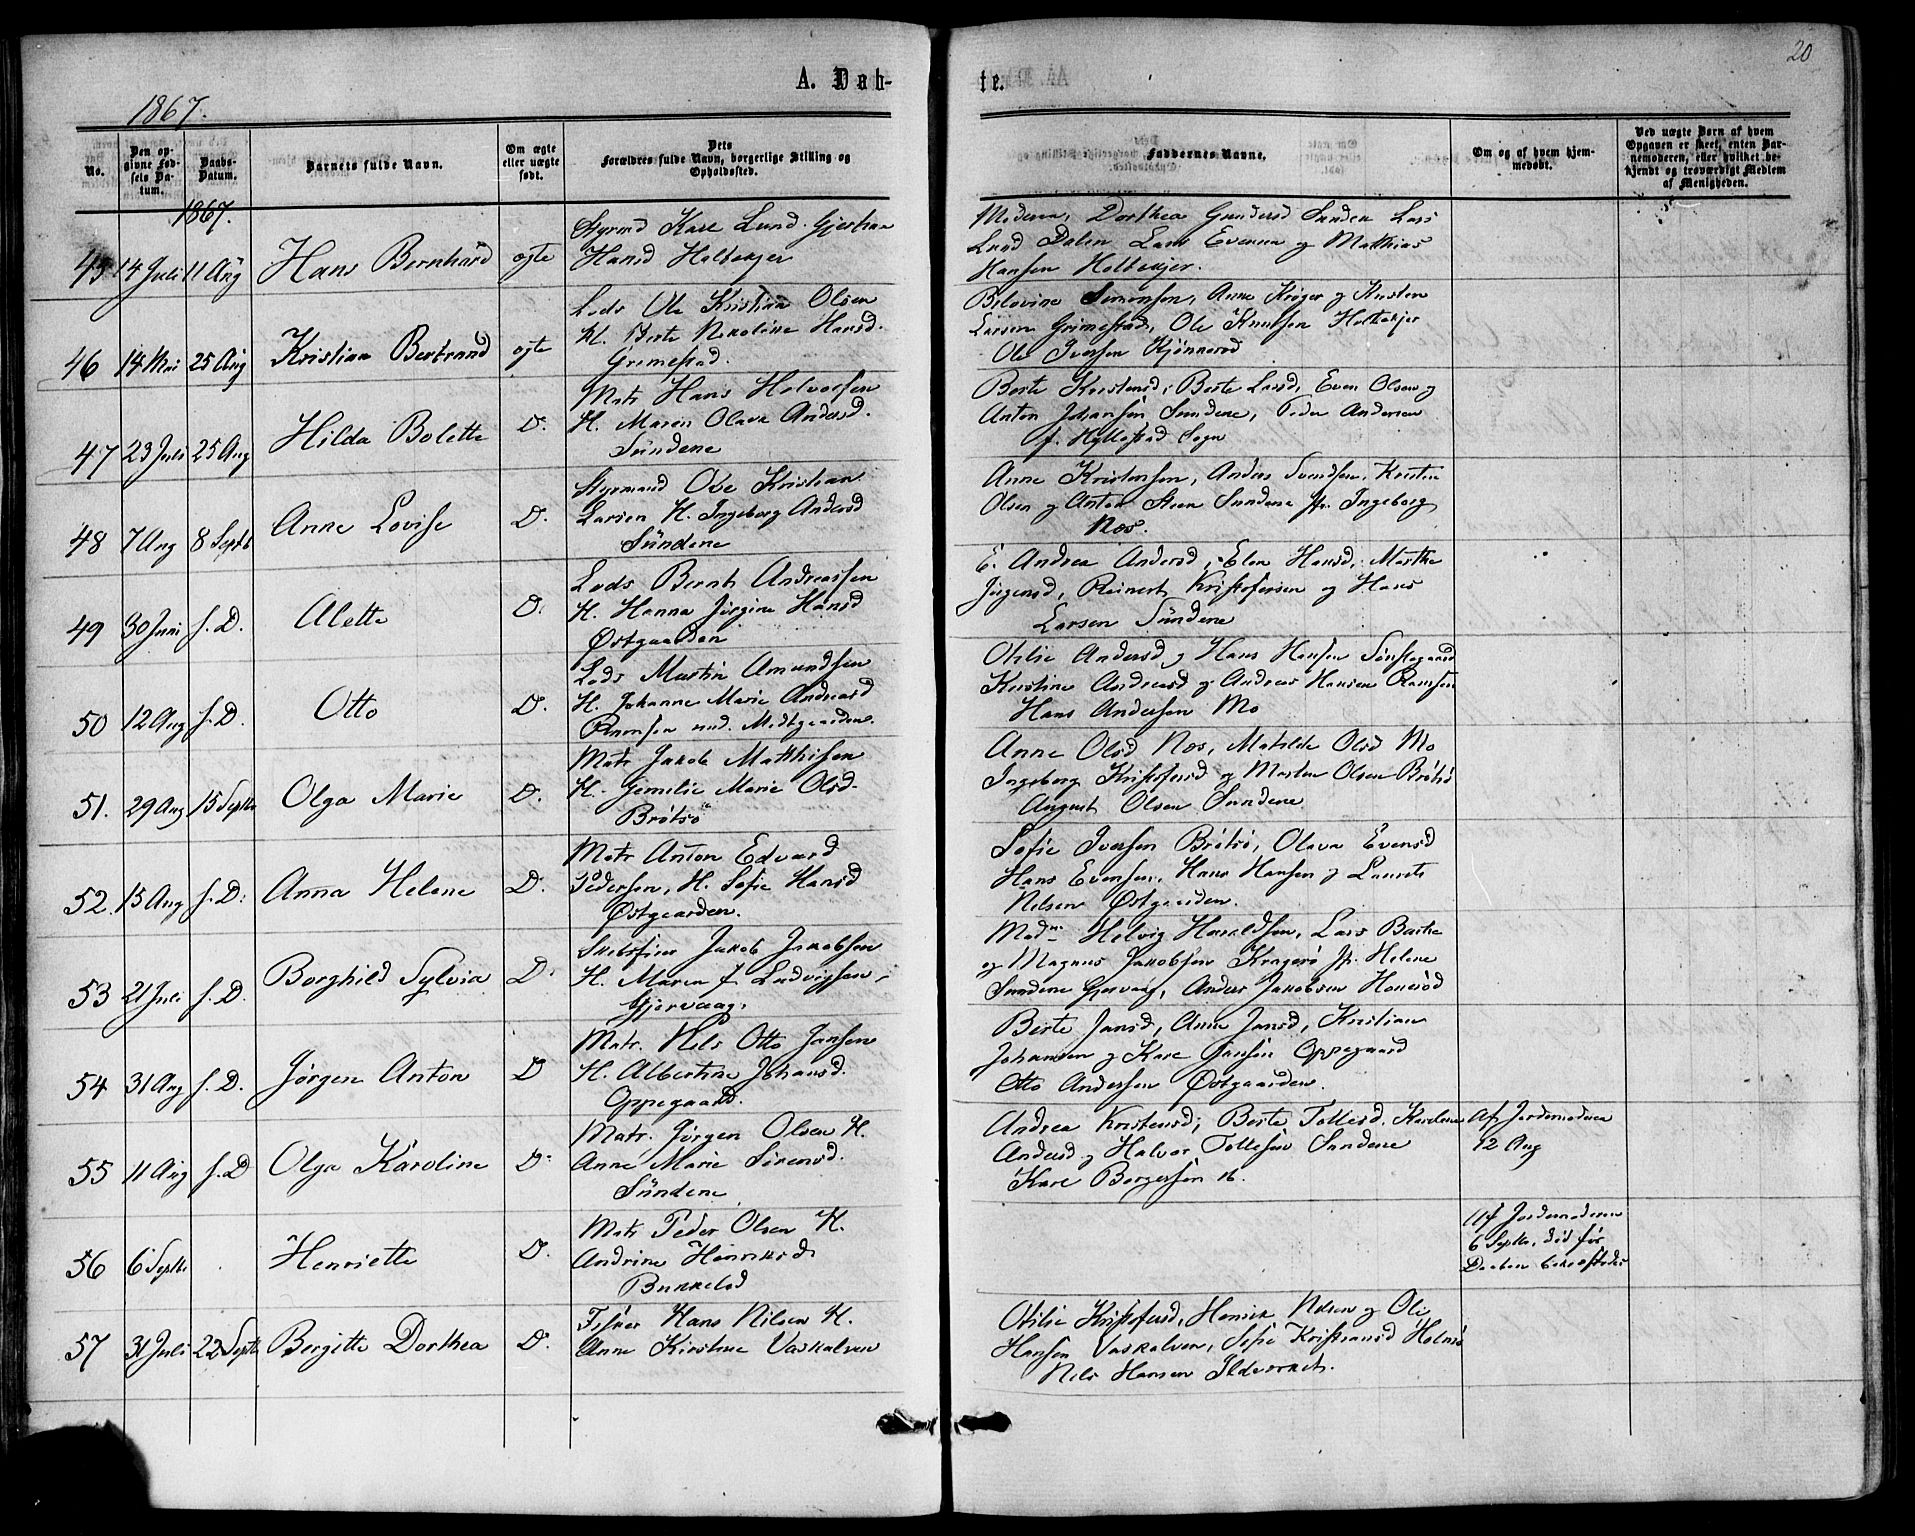 20
A. Døb-
te.
1867.
No.
Den opgivne Fødsels Datum.
Daabs-Datum.
Barnets fulde Navn.
Om ægte eller uægte født.
Dets Forældres fulde Navn, borgerlige Stilling og Opholdssted.
Faddernes Navne.
Om og af hvem hjemmedøbt.
Ved uægte Børn af hvem Opgaven er skeet, enten Barnemoderen, eller hvilket bekjendt og troværdigt Medlem af Menigheden.
1867.
45 14 Juli 11 Aug Hans Bernhard ægte
Styrmd Kare Lund
Hansd Holbekjer
Moderen, Dorthea Gundersd Sunden Lars
Lund Dalen Lars Evensen og Matthias
Hansen Holbekjer.
46 14 Mai 25 Aug Kristian Bertrand ægte
Lods Ole Kristian Olsen
H. Berte Nikoline Hansd.
Grimestad.
Simonsen, Anne Krøger og Kristen
Larsen Grimestad, Ole Knutsen Holbekjer
Ole Iversen Kjønnerød
47 23 Juli 25 Aug Hilda Bolette D.
Matr Hans Halvorsen
H. Maren Olava Andersd.
Sundene
Berte Kristensd, Berte Larsd, Even Olsen og
Anton Johansen Sundene, Peder Andersen
f. Hyllestad Sogn
48 7 Aug 8 Septb Anne Lovise D.
Styrmand Ole Kristian
Larsen H. Ingeborg Andersd
Sundene
Anne Kristensen, Anders Svendsen, Kristen
Olsen og Anton Steen Sundene Jfr. Ingeborg
Næs.
49 30 Juni s. D. Alette D.
Lods Bernt Andreassen
H. Hanna Jørgine Hansd
Østgaarden
E. Andrea Andersd, Elen Hansd, Marthe
Jørgensd, Reinert Kristofersen og Hans
Larsen Sundene
50 12 Aug s. D. Otto D.
Lods Martin Amundsen
H. Johanne Marie Andreasd
Ramsen und. Midtgaarden.
Otilie Andersd og Hans Hansen
Kristine Andreasd og Andreas Hansen Ramsen
Hans Andersen Mo
51. 29 Aug 15 Septb Olga Marie D.
Matr Jakob Mathisen
H. Gemilie Marie Olsd.
Brøtsø
Anne Olsd Næs, Matilde Olsd Mo
Ingeborg Kristofersd og Morten Olsen Brøtsø
August Olsen Sundene
52. 15 Aug s. D. Anna Helene D.
Matr Anton Edvard
Pedersen, H. Sofie Hansd
Østgaarden.
Sofie Iversen Brøtsø, Olava Evensd
Hans Evensen, Hans Hansen og Laurits
Nilsen Østgaarden.
53 21 Juli s. D. Borghild Sylvia D.
Jakob Jakobsen
H. Maren f. Ludvigsen
Gjervaag.
Madm Helvig Haraldsen, Lars Bache
og Magnus Jakobsen Kragerø Jfr. Helene
Sundene Gjervaag, Anders Jakobsen Honerød
54 31 Aug s. D. Jørgen Anton D
Matr. Nils Otto Jansen
H. Albertine Johansd.
Oppegaard.
Berte Jansd, Anne Jansd, Kristian
Johansen og Kare Jansen Oppegaard
Otto Andersen Østgaarden.
55 11 Aug s. D Olga Karoline D.
Matr. Jørgen Olsen H.
Anne Marie Sørensd.
Sundene
Andrea Kristensd, Berte Tollefsd, Karoline
Andersd og Halvor Tollefsen Sundene
Kare Borgersen ib.
Af Jordemoderen
12 Aug
56 6 Septb Henriette D.
Matr Peder Olsen H.
Andrine Henriksd
Af Jordemoderen
6 Septb, død før
Daaben bekræftedes
57 31 Juli 22 Septb Bergitte Dorthea D.
Fisker Hans Nilsen H.
Anne Kirstine Vaskalven
Otilie Kristofersd, Henrik Nilsen og Ole
Hansen Vaskalven, Sofie Kristiansd Holmsø
Nils Hansen Ildverket.